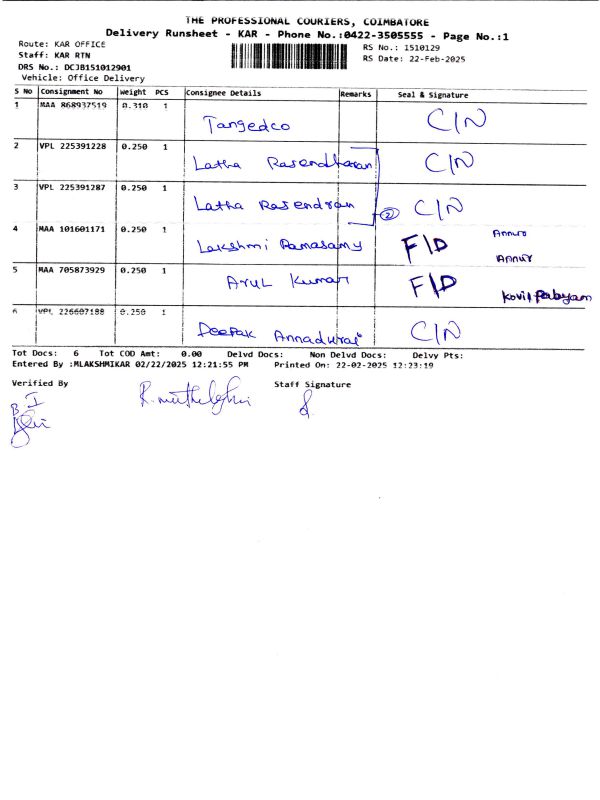 THE PROFESSIONAL COURIERS, COIMBATORE
Delivery Runsheet - KAR - Phone No.:0422-3505555 - Page No.:1
Route: KAR OFFICE
Staff: KAR RTN
DRS No.: DCJB151012901
Vehicle: Office Delivery
RS No.: 1510129
RS Date: 22-Feb-2025
S No Consignment No Weight PCS Consignee Details Remarks Seal & Signature
1 MAA 868937519 0.310 1 Tangedco C/N
2 VPL 225391228 0.250 1 Latha Rasendharan C/N
3 VPL 225391287 0.250 1 Latha Rasendran ② C/N
4 MAA 101601171 0.250 1 Lakshmi Ramasamy F/D Annur
Annur
5 MAA 705873929 0.250 1 Arul Kumar F/D Kovil Palayam
6 VPL 226607188 0.250 1 Deepak Annadurai C/N
Tot Docs: 6 Tot COD Amt: 0.00 Delvd Docs: Non Delvd Docs: Delvy Pts:
Entered By :MLAKSHMIKAR 02/22/2025 12:21:55 PM Printed On: 22-02-2025 12:23:19
Verified By Staff Signature